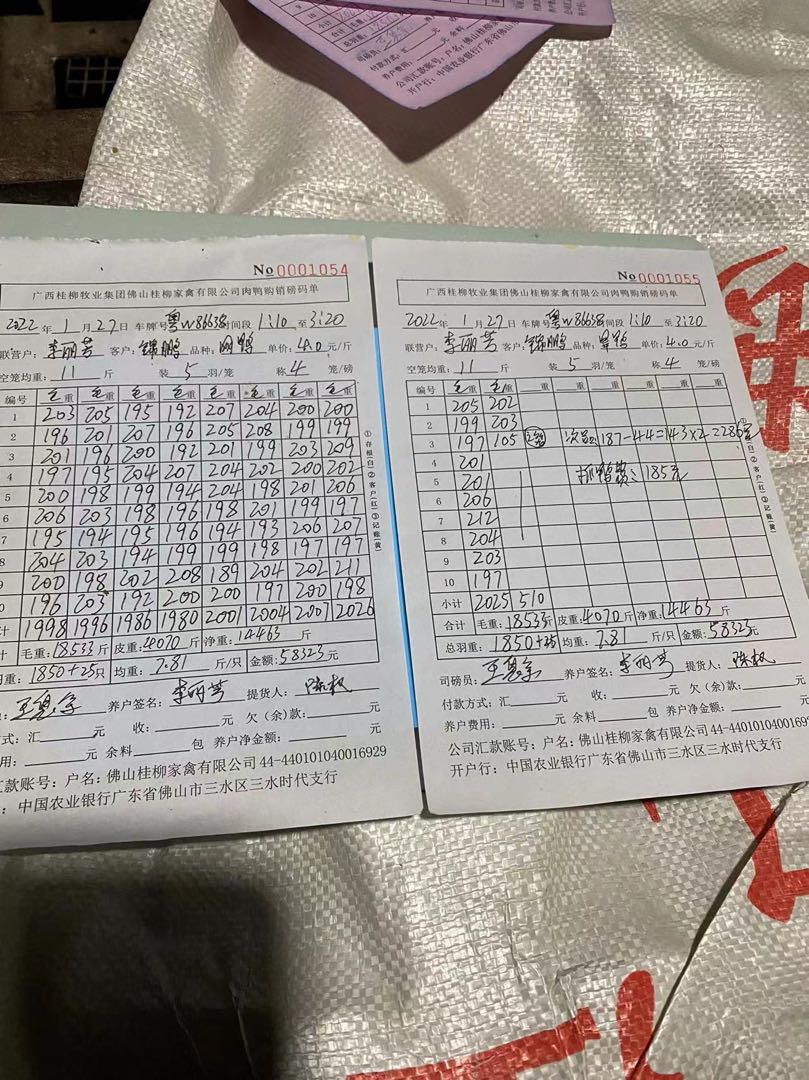 公司汇款账号：户名：佛山桂柳家禽
开户行：中国农业银行广东省佛山
No 0001054
广西桂柳牧业集团佛山桂柳家禽有限公司肉鸭购销磅码单
2022 年 1 月 27 日 车牌号 粤W8663 时间段 1:10 至 3:20
联营户：李丽芳 客户：锦鹏 品种： 单价：4.0 元/斤
空笼均重：11 斤 装 5 羽/笼 称 4 笼/磅
编号 毛重 毛重 毛重 毛重 毛重 毛重 毛重 毛重
1 203 205 195 192 207 204 200 200
2 196 201 207 196 205 208 199 199
3 201 196 200 192 201 199 203 209
4 197 195 204 207 204 202 200 202
5 200 198 199 194 204 198 201 206
6 206 203 198 196 198 201 199 197
7 195 194 195 196 194 193 206 207
8 204 203 194 199 199 198 197 197
9 200 198 202 208 189 204 202 211
0 196 203 192 200 200 197 200 198
计 1998 1996 1986 1980 2001 2004 2007 2026
毛重：18533 斤 皮重：4070 斤 净重：14463 斤
重：1850+25只 均重：7.81 斤/只 金额：58323 元
养户签名：李丽芳 提货人：
式：汇 元 收： 元 欠（余）款： 元
用： 元 余料 包 养户净金额： 元
汇款账号：户名：佛山桂柳家禽有限公司 44-440101040016929
：中国农业银行广东省佛山市三水区三水时代支行
①存根(白)②客户(红)③记账(黄)
No 0001055
广西桂柳牧业集团佛山桂柳家禽有限公司肉鸭购销磅码单
2022 年 1 月 27 日 车牌号 粤W8663 时间段 1:10 至 3:20
联营户：李丽芳 客户：锦鹏 品种： 单价：4.0 元/斤
空笼均重：11 斤 装 5 羽/笼 称 4 笼/磅
编号 毛重 毛重 重 重 重 重 重 重
1 205 202
2 199 203
3 197 105 次品：187-44=143×2=286元
4 201
5 201 抓鸭费：185元
6 206
7 212
8 204
9 203
10 197
小计 2025 510
合计 毛重：18533 斤 皮重：4070 斤 净重：14463 斤
总羽重：1850+25 均重：7.81 斤/只 金额：58323 元
司磅员： 养户签名：李丽芳 提货人：
付款方式：汇 元 收： 元 欠（余）款： 元
养户费用： 元 余料 包 养户净金额： 元
公司汇款账号：户名：佛山桂柳家禽有限公司 44-440101040016929
开户行：中国农业银行广东省佛山市三水区三水时代支行